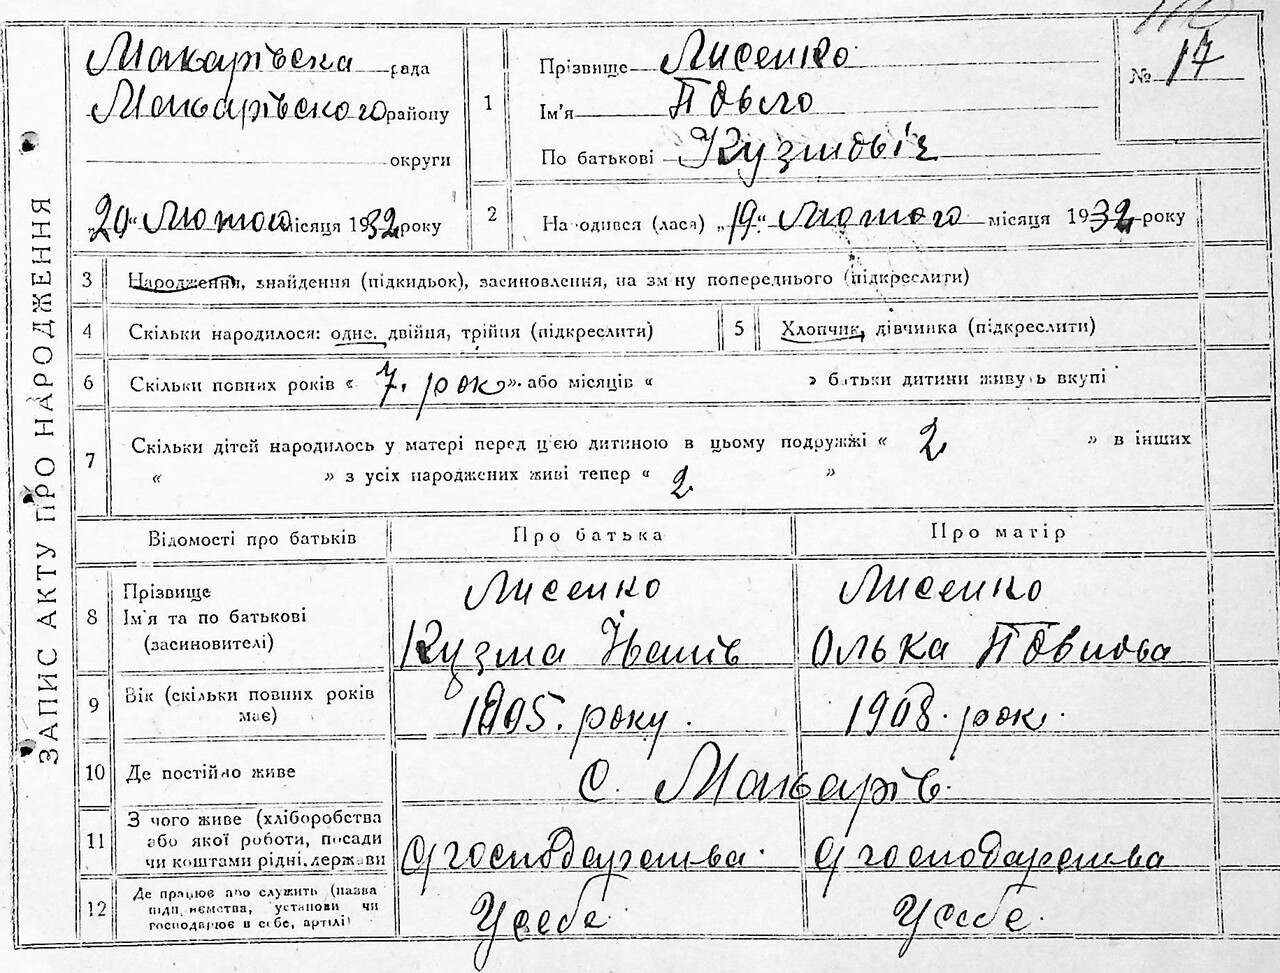 ЗАПИС АКТУ ПРО НАРОДЖЕННЯ
Макарівска рада
Макарівского району
округи
„20“ Лютого місяця 1932 року
1
Прізвище Лисенко
Ім'я Павло
По батькові Кузмовіч
№ 17
2 Народився (лася) „19“ Лютого місяця 1932 року
3 Народження, знайдення (підкидьок), засиновлення, на зміну попереднього (підкреслити)
4 Скільки народилося: одне, двійня, трійня (підкреслити)
5 Хлопчик, дівчинка (підкреслити)
6 Скільки повних років « 7. рок » або місяців « » батьки дитини живуть вкупі
7 Скільки дітей народилось у матері перед цією дитиною в цьому подружжі « 2 » в інших
« » з усіх народжених живі тепер « 2 »
Відомості про батьків Про батька Про матір
8 Прізвище
Ім'я та по батькові
(засиновителі)
Лисенко
Кузма Іванів
Лисенко
Олька Павлова
9 Вік (скільки повних років
має)
1905. року.
1908. рок.
10 Де постійно живе с. Макарів.
11 З чого живе (хліборобства
або якої роботи, посади
чи коштами рідні, держави
сг господарства.
сг господарства
12 Де працює або служить (назва
підприємства, установи чи
господарює в себе, артілі)
У себе.
У себе.